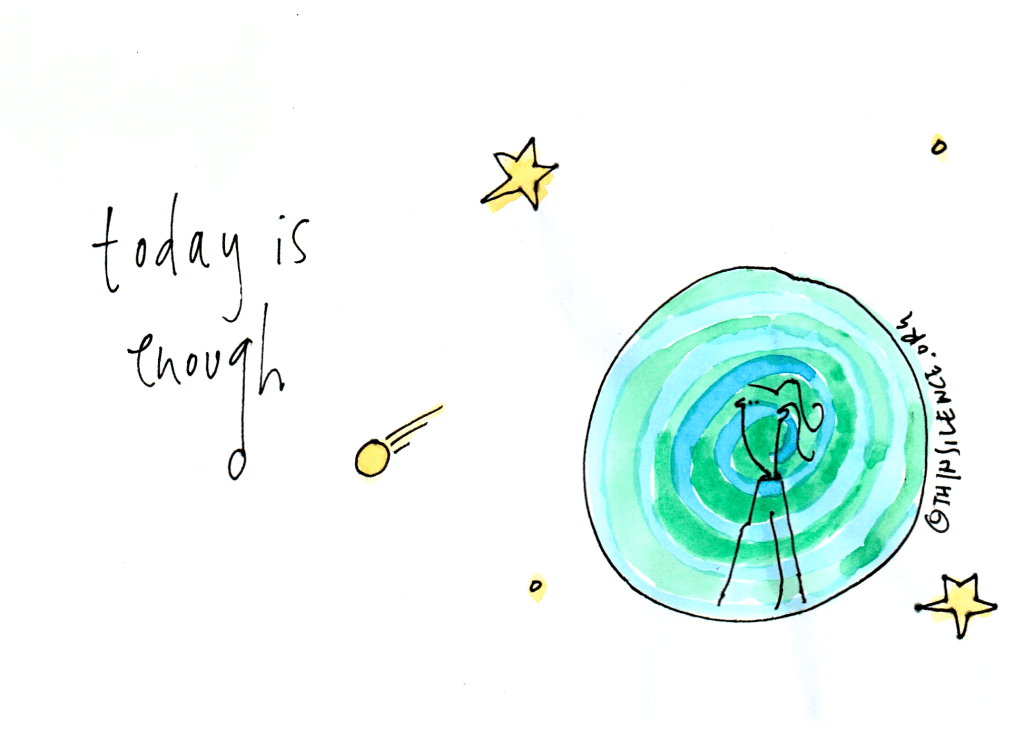 today is
enough
@THINSILENCE.ORG